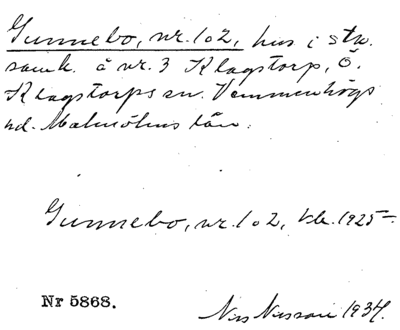 Gunnebo, nr. 1 o 2, hus i stn.
samh. å nr. 3 Klagstorp, Ö.
Klagstorps sn. Vemmenhögs
hd. Malmöhus län.
Gunnebo, nr. 1 o 2, kle. 1925
Nr 5868.
Nils Nilsson 1934.